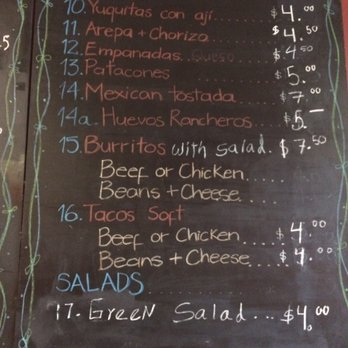 10. Yuquitas con ají........ $4.00
11. Arepa + chorizo.... $4.50
12. Empanadas Queso $4.50
13. Patacones ......... $5.00
14. Mexican tostada.... $7.00
14a. Huevos Rancheros.... $5.—
15. Burritos with salad. $7.50
Beef or Chicken....
Beans + Cheese....
16. Tacos Soft
Beef or Chicken.... $4.00
Beans + Cheese..... $4.00
SALADS.....
17. Green Salad... $4.00